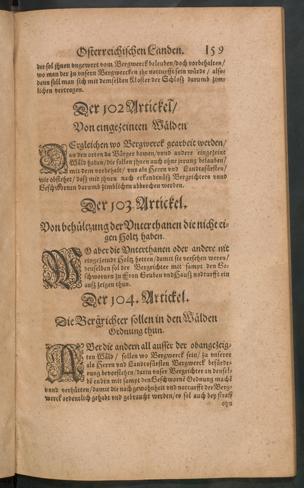 Osterreichischen Landen. 159
der sol ihnen ungewert vom Bergwerck beleuben/doch vorbehalten/
wo man der zu unsern Bergwercken die notturfft sein würde / als-
dann soll man sich mit demselben Kloster der Schloß darumb zim-
lichen vertragen.
Der 102 Artickel/
Von eingezeinten Wälden
DErgleichen wo Bergwerck gearbeit werden/
an den orten da Bürger bawen/unnd andere eingezeint
Wäld haben/die sollen ihnen auch ohne irrung belauben/
mit dem vorbehalt / uns als Herrn und Landtsfürsten/
wie obstehet / daß mit ihnen nach erkantnuß Bergrichters unnd
Geschwornen darumb zimblichen abbrochen werden.
Der 103. Artickel.
Von behülczung der Unterthanen die nicht ei-
gen Holtz haben.
WO aber die Unterthanen oder andere nit
eingezeinde Holtz hetten / damit sie versehen weren/
denselben sol der Bergrichter mit sampt den Ge-
schwornen zu Fron Geuben und Hauß nodturfft ein
auß zeigen thun.
Der 104. Artickel.
Die Bergrichter sollen in den Wälden
Ordnung thun.
ABer die andern all ausser der obangezeig-
ten Wäld / sollen wo Bergwerck sein / zu unsern
als Herrn und Landtsfürsten Bergwerck befürde-
rung bevorstehen / darin unser Bergrichter an densel-
ben enden mit sampt den Geschworne Ordnung machē
unnd verhütten / damit die nach gewonheit und notturfft der Berg-
werck ordenlich gehabt und gebraucht werden / er sol auch bey straff